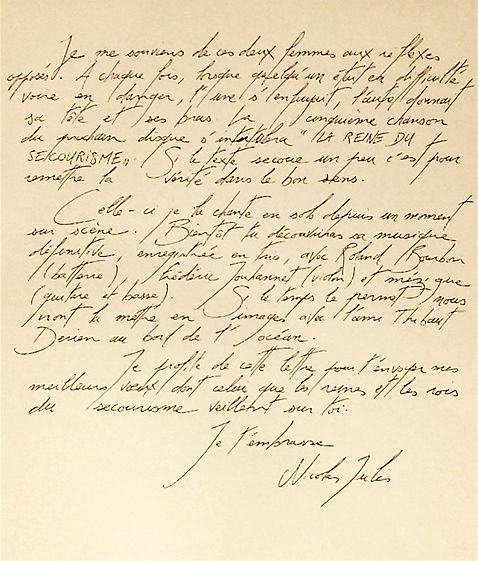 Je me souviens de ces deux femmes aux réflexes
opposés. A chaque fois, lorsque quelqu'un était en difficulté
voire en danger, l'une s'enfuyait, l'autre donnait
sa tête et ses bras. La cinquième chanson
du prochain disque s'intitulera "LA REINE DU
SECOURISME". Si le texte secoue un peu c'est pour
remettre la vérité dans le bon sens.
Celle-ci je la chante en solo depuis un moment
sur scène. Bientôt tu découvriras sa musique
définitive, enregistrée en trio, avec Roland Bourbon
(batterie), Frédéric Jouhannet (violon) et mézigue
(guitare et basse). Si le temps le permet nous
irons la mettre en images avec l'ami Thibaut
Derien au bord de l'océan.
Je profite de cette lettre pour t'envoyer mes
meilleurs voeux dont celui que les reines et les rois
du secourisme veillent sur toi.
Je t'embrasse
Nicolas Jules